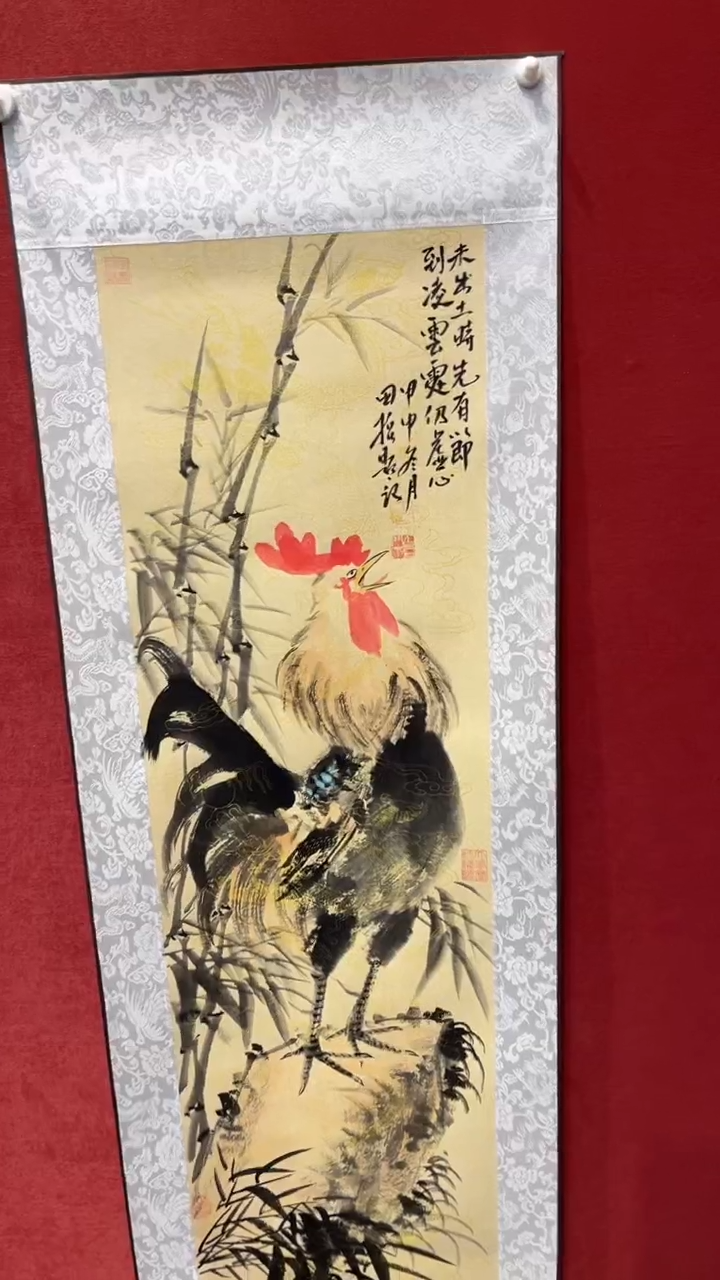 未出土時先有節
到凌雲處仍虛心
甲申冬月
田 題記